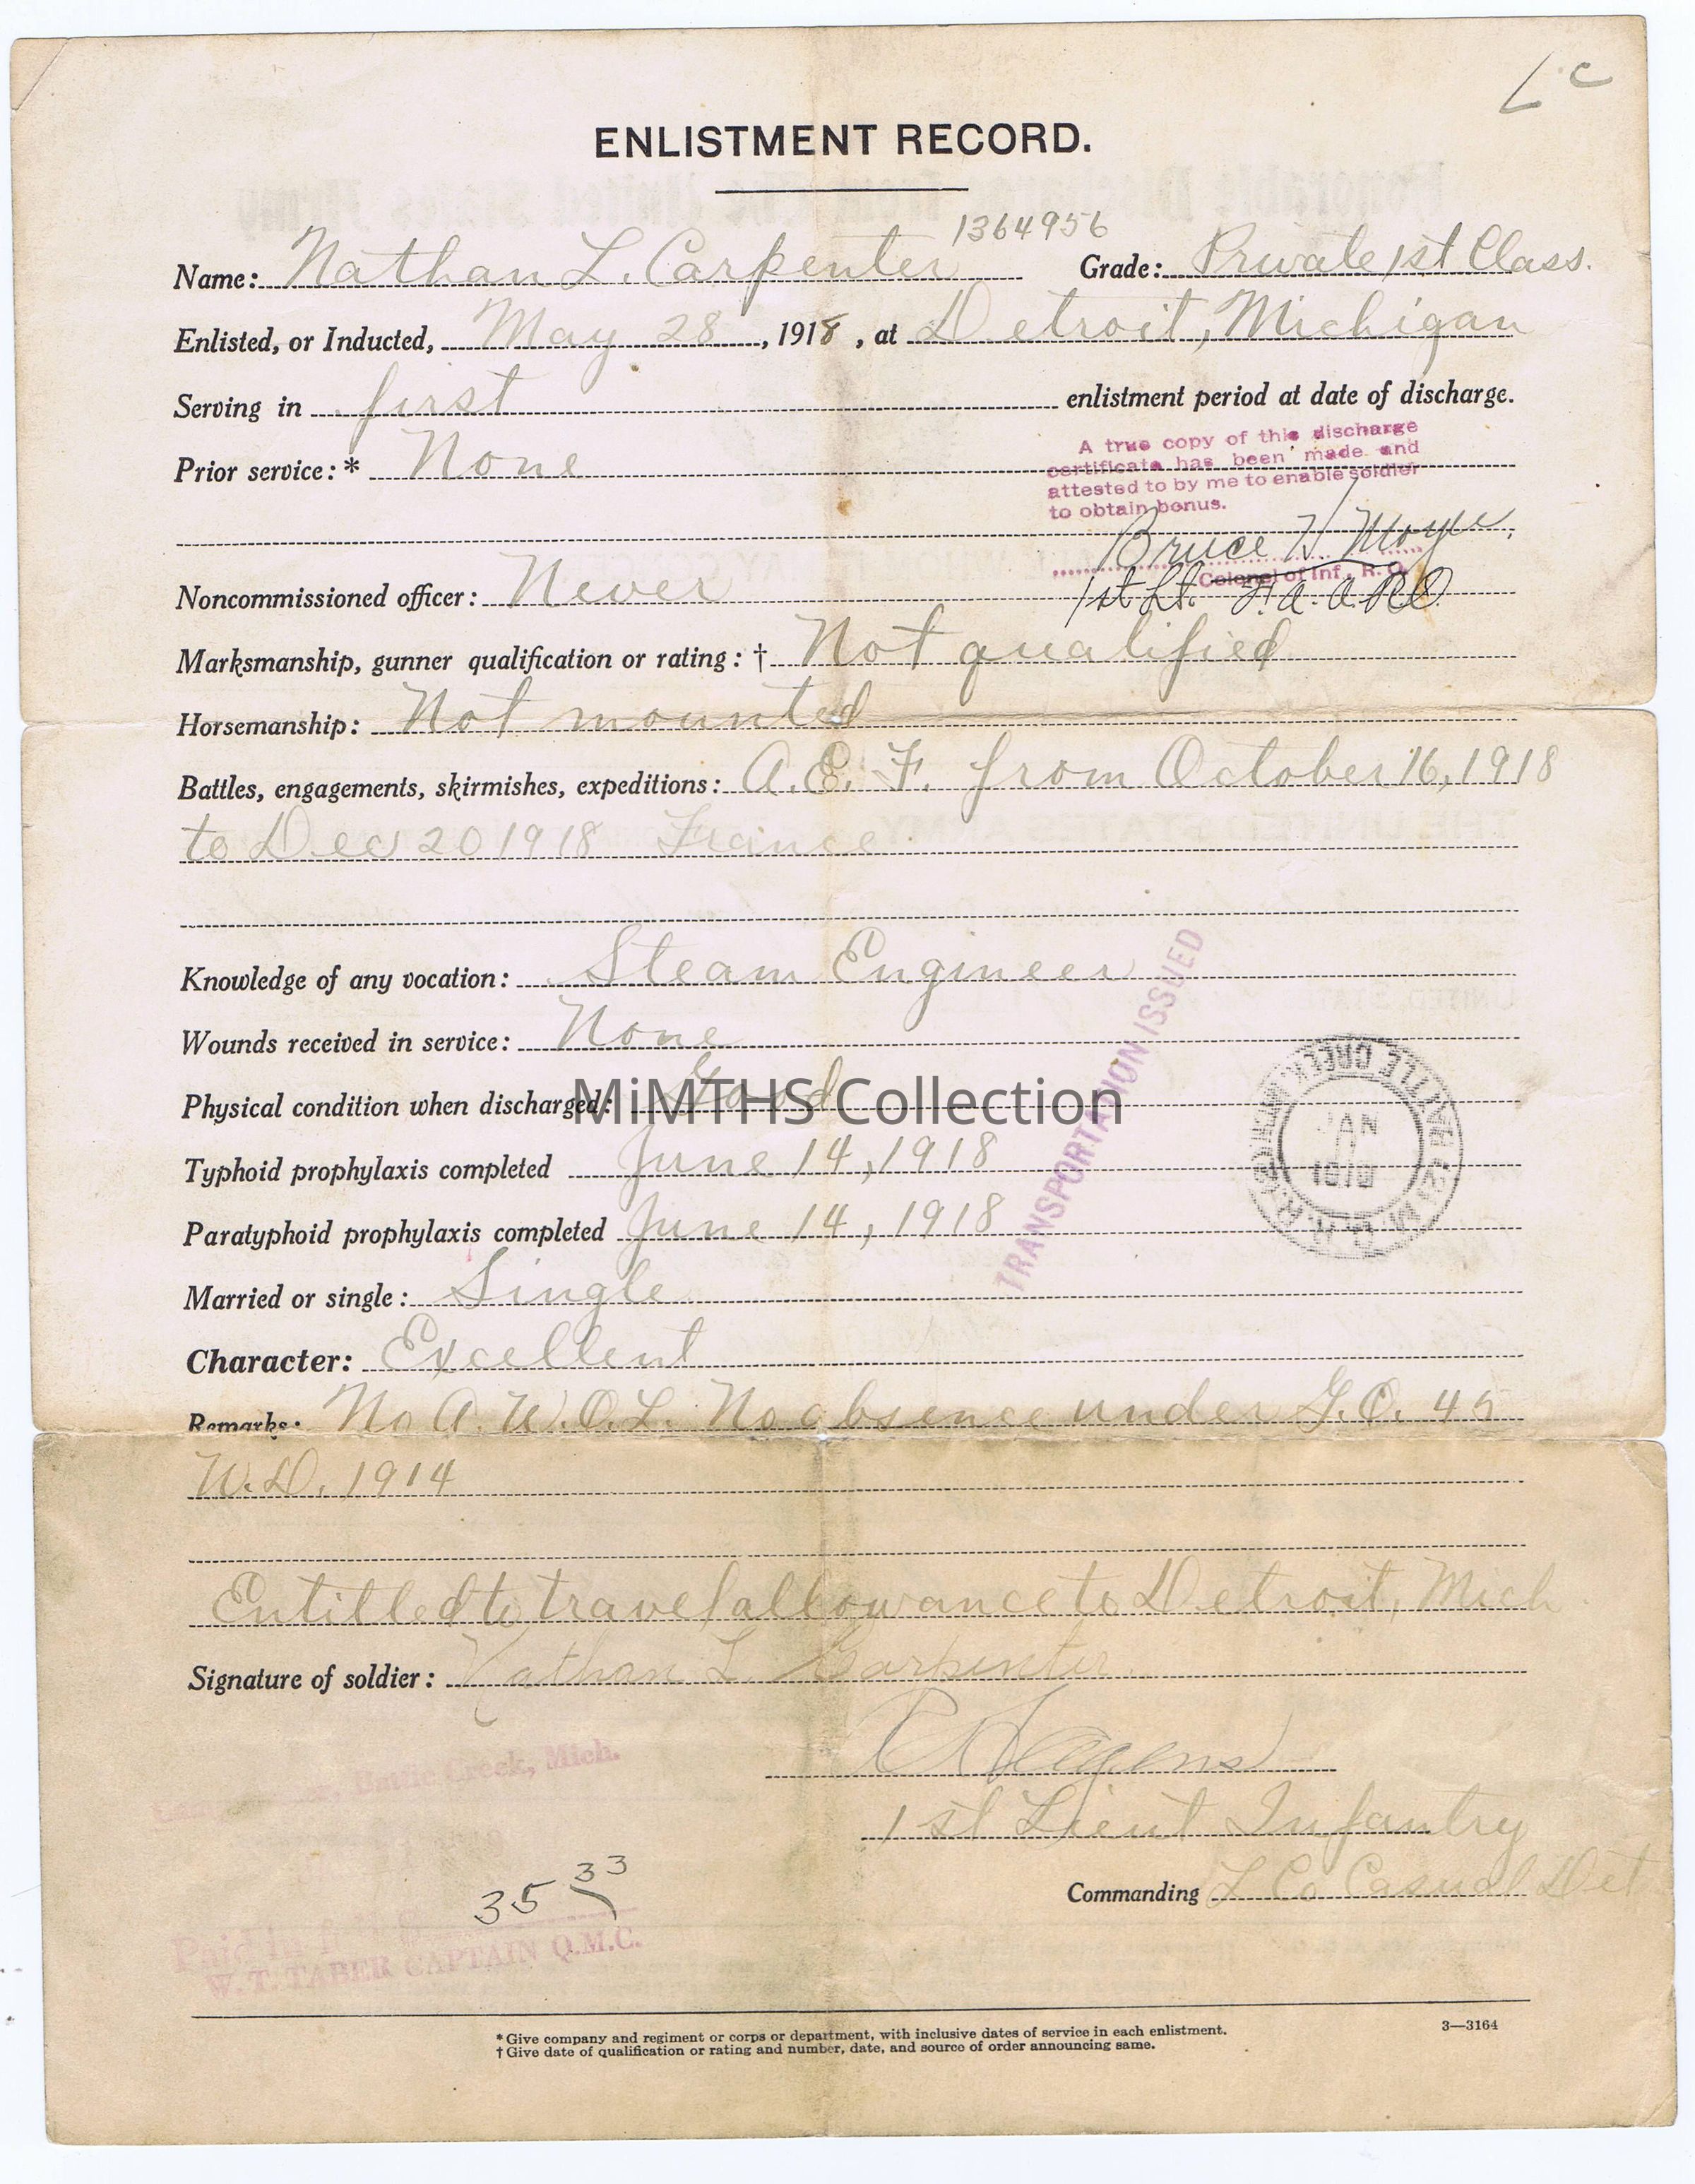 L C
ENLISTMENT RECORD.
1364956
Name: Nathan L. Carpenter Grade: Private 1st Class.
Enlisted, or Inducted, May 28, 1918, at Detroit, Michigan
Serving in first enlistment period at date of discharge.
A true copy of this discharge
certificate has been made and
attested to by me to enable soldier
to obtain bonus.
Prior service:* None
Bruce
Colonel of Inf., R. O.
1st Lt. F.A. O.R.C
Noncommissioned officer: Never
Marksmanship, gunner qualification or rating: † Not qualified
Horsemanship: Not mounted
Battles, engagements, skirmishes, expeditions: A.E.F. from October 16, 1918
to Dec 20 1918 France
Knowledge of any vocation: Steam Engineer
Wounds received in service: None
Physical condition when discharged: Good
MiMTHS Collection
TRANSPORTATION ISSUED
BATTLE CREEK
JAN
Typhoid prophylaxis completed June 14, 1918
Paratyphoid prophylaxis completed June 14, 1918
Married or single: Single
Character: Excellent
Remarks: No A.W.O.L. No absence under G.O. 45
W.D. 1914
Entitled to travel allowance to Detroit, Mich
Signature of soldier: Nathan L. Carpenter
1st Lieut Infantry
Commanding Co Casual Det
Battle Creek, Mich.
35 33
Paid in full $
W. T. TABER CAPTAIN Q.M.C.
* Give company and regiment or corps or department, with inclusive dates of service in each enlistment.
† Give date of qualification or rating and number, date, and source of order announcing same.
3—3164